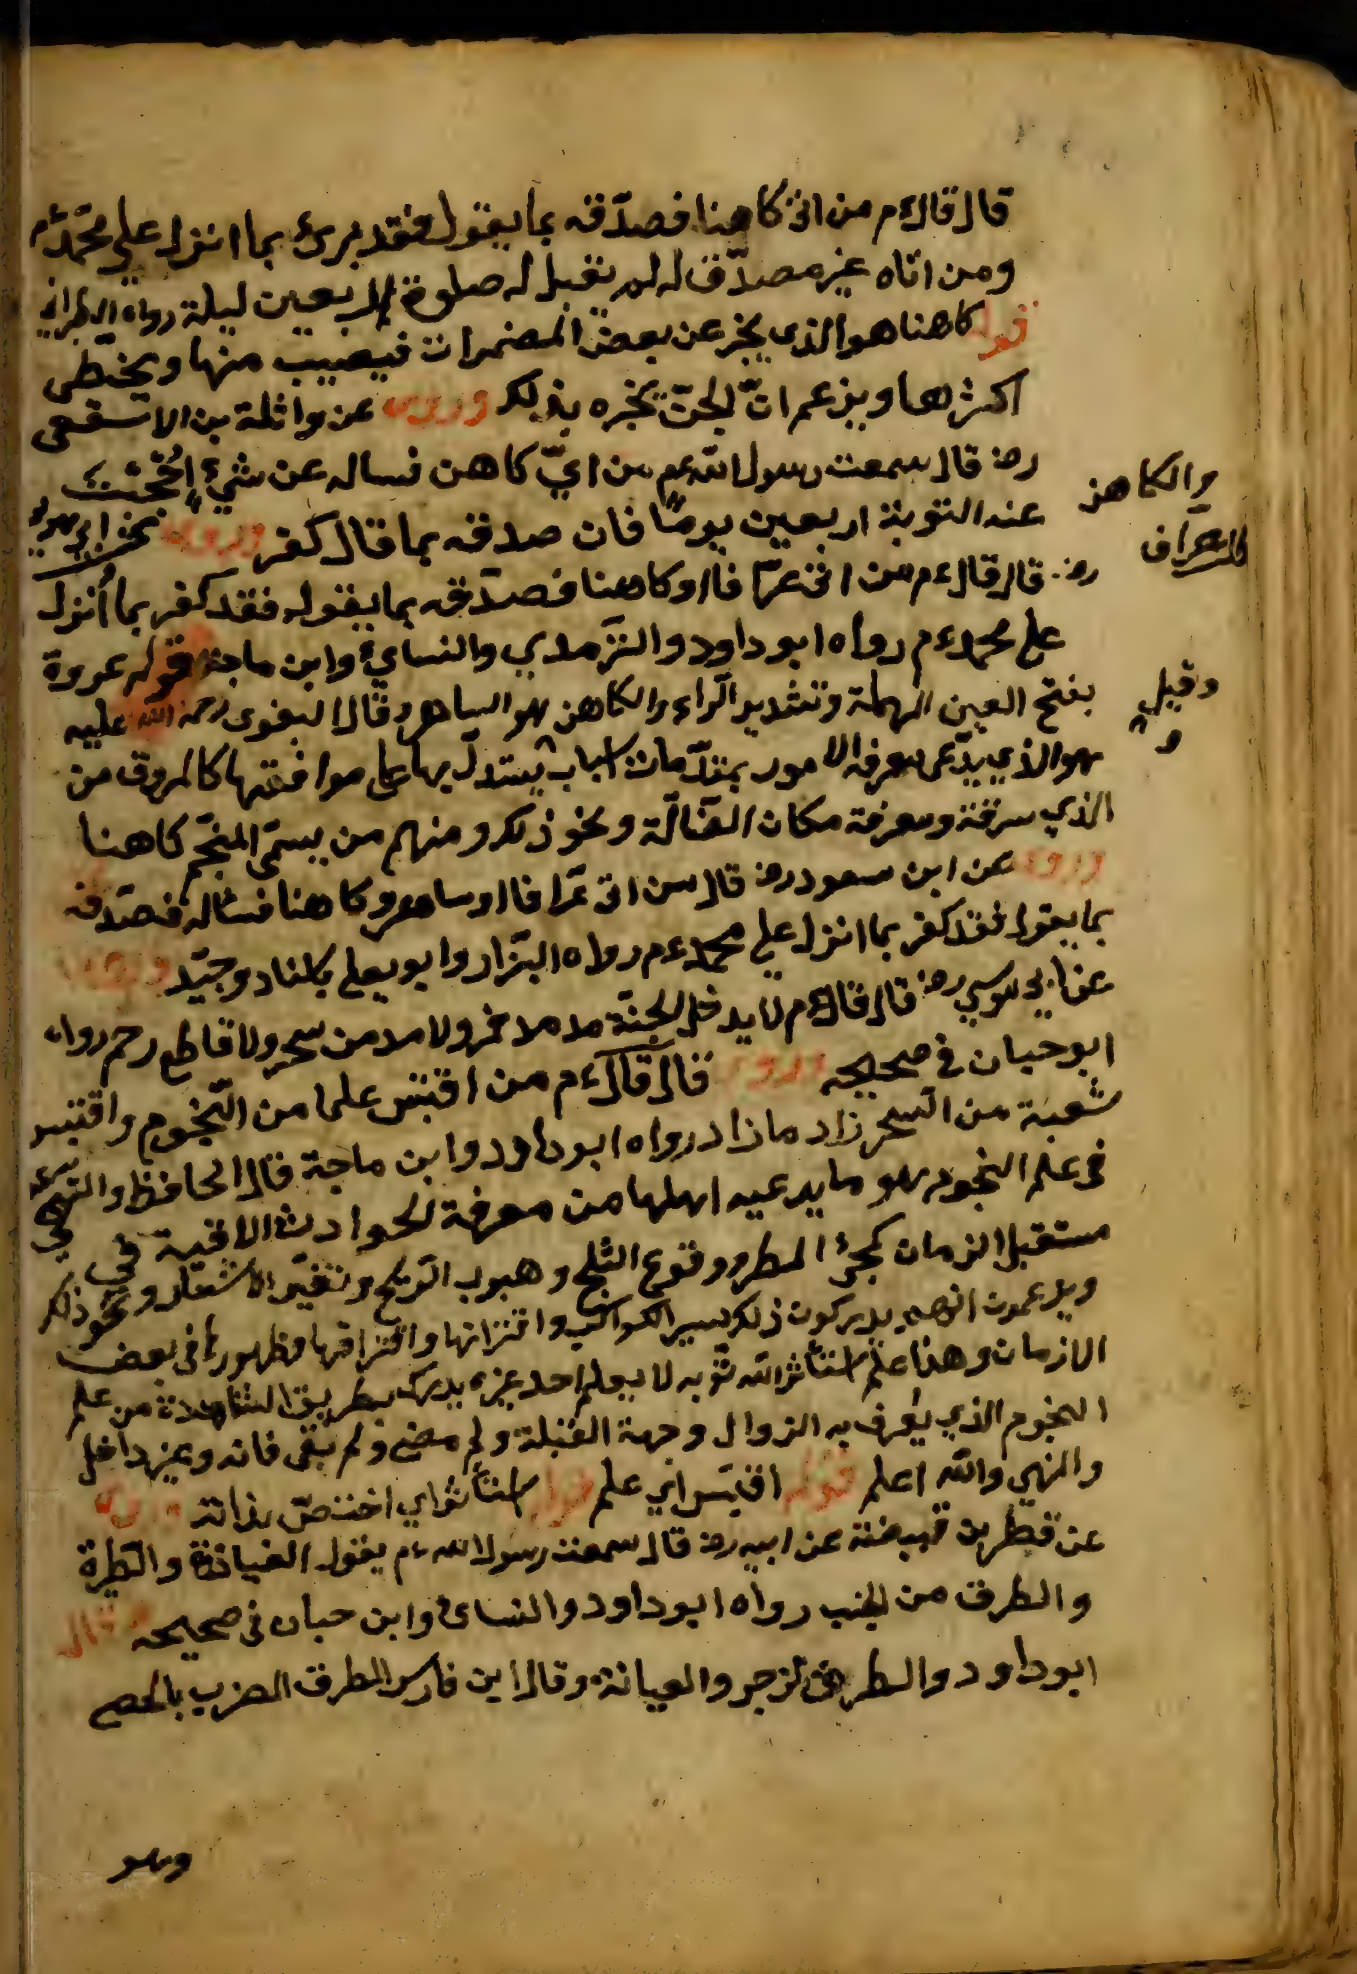 قال قال ءم من اتى كاهنا فصدّقه بما يقول فقد برئ بما انزل على محمّد ءم
ومن اتاه غير مصدّق له لم يقبل له صلوة اربعين ليلة رواه الطبراني
قوله كاهنا هو الذي يخبر عن بعض المضمرات فيصيب منها ويخطى
اكثرها ويزعم انّ الجنّ يخبره بذلك وروى عن واثلة بن الاسقع
رض قال سمعت رسول الله عم من اتى كاهن فساله عن شيء احجبت
عنه التوبة اربعين يوما فان صدقه بما قال كفر وروى عن ابي هريرة
رض قال قال ءم من اتى عرّافا او كاهنا فصدّقه بما يقول فقد كفر بما انزل
على محمد ءم رواه ابو داود والترمدي والنساي وابن ماجة قوله عروة
بفتح العين المهملة وتشديد الراء والكاهن هو الساحر وقال البغوى رحمة الله عليه
هو الذي يدّعى معرفة الامور بمقدّمات اسباب يستدلّ بها على موافقتها كالمروق من
الذي سرقة ومعرفة مكان الضّالّة ونحو ذلك ومنهم من يسمّى المنجّم كاهنا
وروى عن ابن مسعود رض قال من اتى عرّافا او ساحر او كاهنا فساله فصدّقه
بما يقول فقد كفر بما انزل على محمد ءم رواه البزّار وابو يعلى باسناد وجيّد
عن ابي موسى رض قال قال ءم لا يدخل الجنّة مدمن خمر ولا مدمن سحر ولا قاطع رحم رواه
ابو حبان في صحيحه وروى قال قال ءم من اقتبس علما من النّجوم واقتبس
شعبة من السّحر زاد ما زاد رواه ابو داود وابن ماجة قال الحافظ والنهي
في علم النجوم هو ما يدعيه اهلها من معرفة الحوادث الاتية في
مستقبل الزمان كمجئ المطر ووقوع الثلج وهبوب الرّيح وتغيّر الاسعار ونحو ذلك
ويدعمون انهم يدركون ذلك بسير الكواكب واقترانها وافتراقها وظهورها في بعض
الازمان وهذا علم استأثر الله به لا يعلم احد غيره يدرك بطريق المشاهدة من علم
النجوم الذي يعرف به الزوال وجهة القبلة وكم مضى وكم بقى فانه وغير داخل
والنهي والله اعلم قوله اقتبس اي علم قوله استأثر اي اختصّ بذاته وروى
عن قطر بن قبيصة عن ابيه رض قال سمعت رسول الله ءم يقول العيافة والطيرة
والطرق من الجبت رواه ابو داود والنساى وابن حبان في صحيحه وقال
ابو داود والطرق الزجر والعيافة وقال ابن فارس الطرق الضرب بالحصى
والكاهن
كالعراف
وقيل
و
وهو